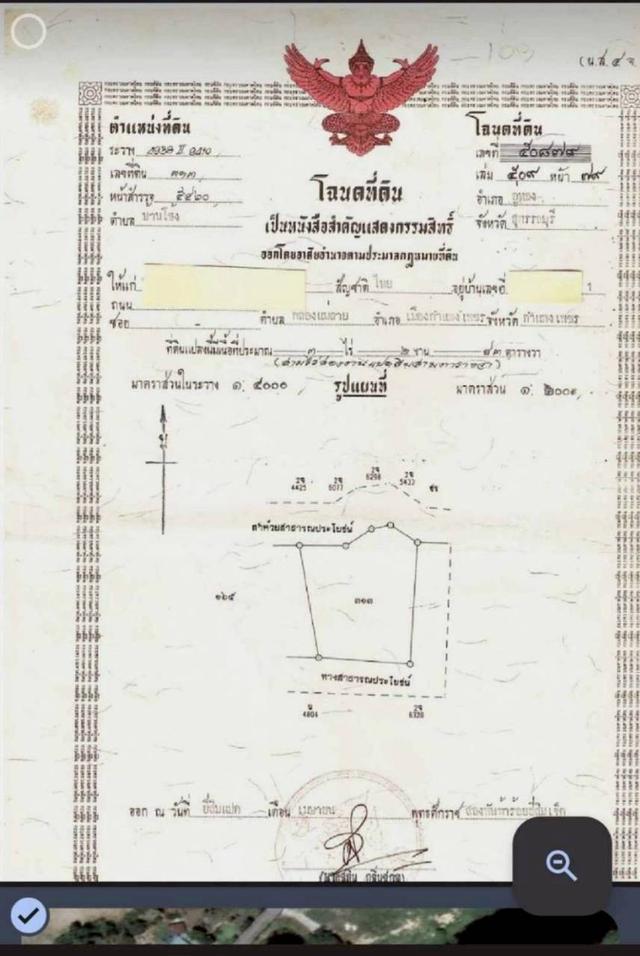 (น.ส.๔ จ
ตำแหน่งที่ดิน
ระวาง
เลขที่ดิน ๓๑๓
หน้าสำรวจ ๕๔๒๐
ตำบล บานโข้ง
โฉนดที่ดิน
เลขที่ ๕๐๘๗๙
เล่ม ๕๐๙ หน้า ๗๙
อำเภอ อู่ทอง
จังหวัด สุพรรณบุรี
โฉนดที่ดิน
เป็นหนังสือสำคัญแสดงกรรมสิทธิ์
ออกโดยอาศัยอำนาจตามประมวลกฎหมายที่ดิน
ให้แก่ สัญชาติ ไทย อยู่บ้านเลขที่ 1
ถนน
ซอย ตำบล คลองแม่ลาย อำเภอ เมืองกำแพงเพชร จังหวัด กำแพงเพชร
ที่ดินแปลงนี้มีเนื้อที่ประมาณ ๓ ไร่ ๒ งาน ๘๓ ตารางวา
(สามไร่สองงานแปดสิบสามตารางวา)
มาตราส่วนในระวาง ๑: ๔๐๐๐ รูปแผนที่ มาตราส่วน ๑: ๒๐๐๐
4425 5077 6298 5433
ลำห้วยสาธารณประโยชน์
๑๖๕ ๓๑๓
ทางสาธารณประโยชน์
4804 6320
ออก ณ วันที่ ยี่สิบแปด เดือน เมษายน พุทธศักราช สองพันห้าร้อยสี่สิบเจ็ด